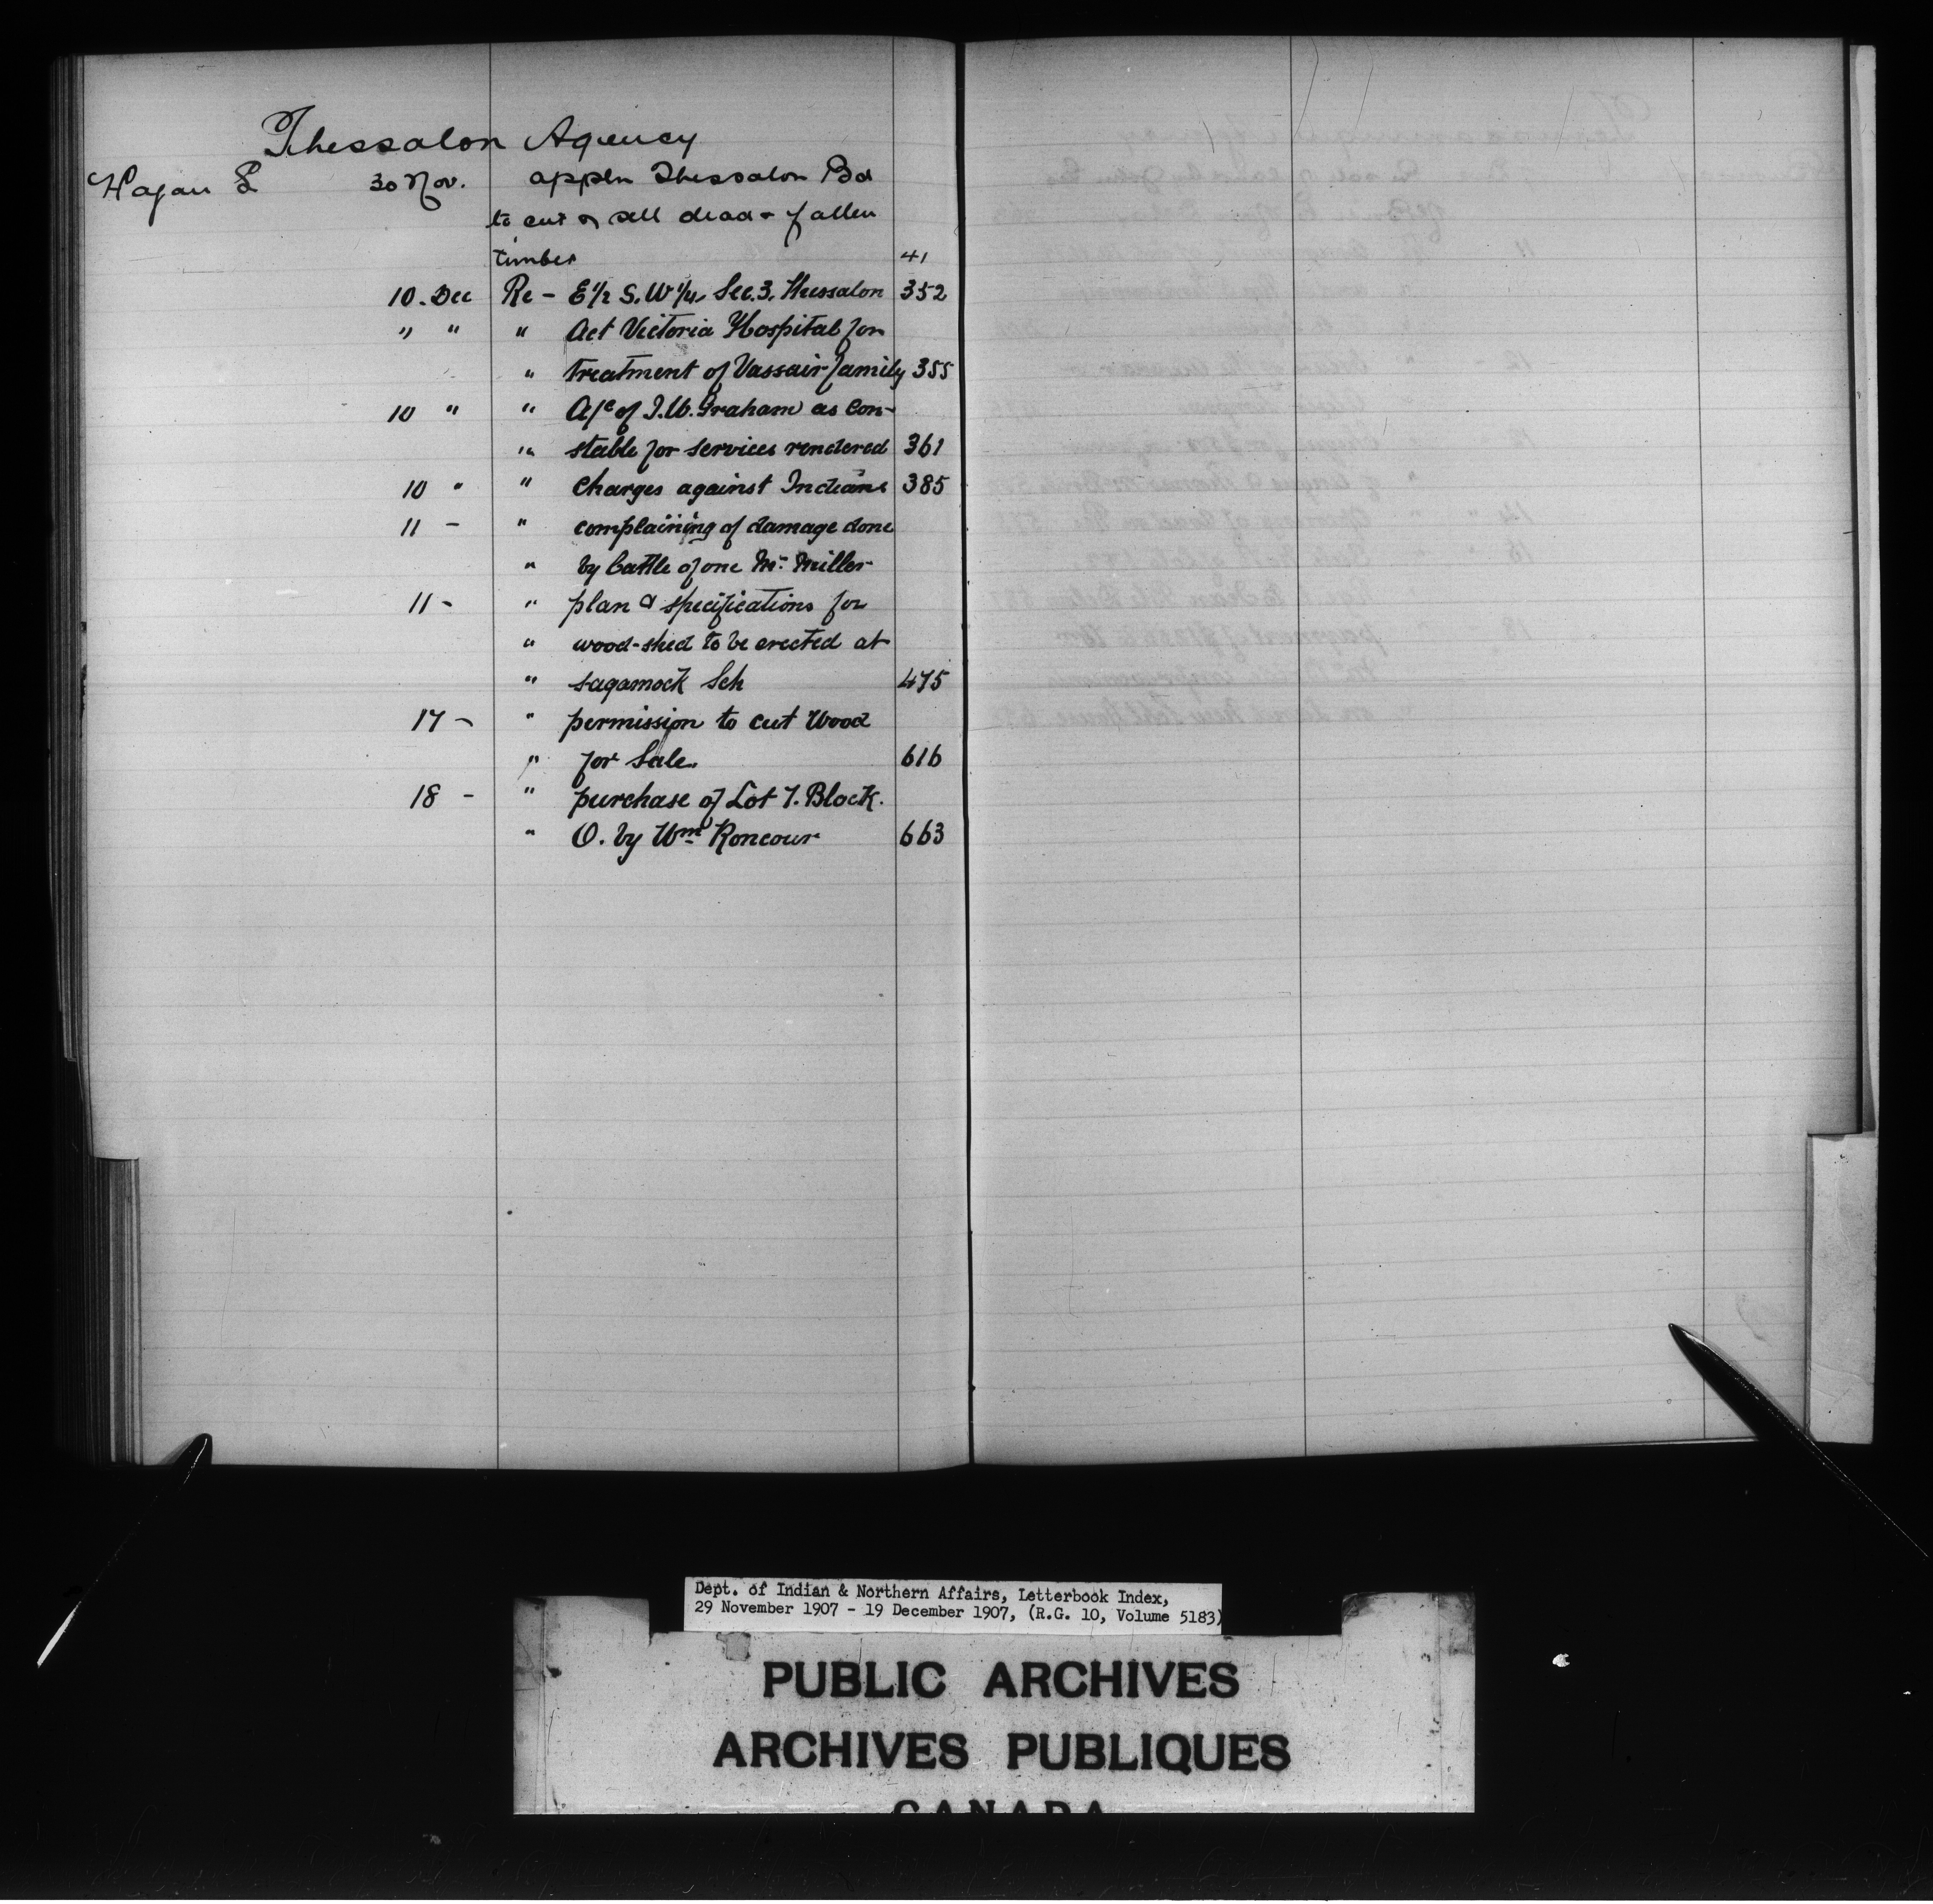 Thessalon Agency
Hagan S 30 Nov. appln Thessalon Bd
to cut & sell dead & fallen
timber 41
10 - Dec Re - E 1/2 S. W 1/4 Sec. 3. Thessalon 352
" " " Act Victoria Hospital for
" treatment of Vassair family 355
10 " " A/c of J. W. Graham as Con-
" stable for services rendered 361
10 " " charges against Indians 385
11 - " complaining of damage done
" by Cattle of one Mr. Miller
11 - " plan & specifications for
" wood-shed to be erected at
" sagamock Sch 475
17 - " permission to cut Wood
" for Sale. 616
18 - " purchase of Lot 7. Block.
" O. by Wm Roncour 663
Dept. of Indian & Northern Affairs, Letterbook Index,
29 November 1907 - 19 December 1907, (R.G. 10, Volume 5183)
PUBLIC ARCHIVES
ARCHIVES PUBLIQUES
CANADA